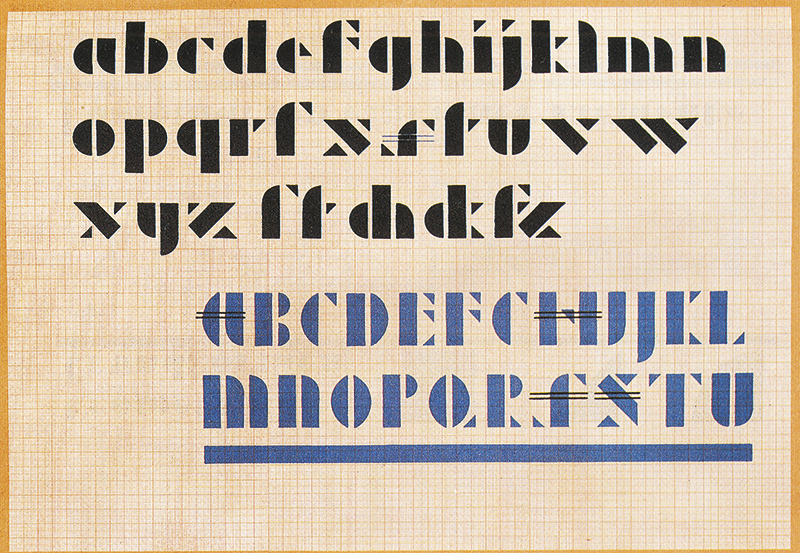 abcdefghijklmn
opqrſsstuvw
xyz ſtchcktz
ABCDEFGHIJKL
MNOPQRSSTU